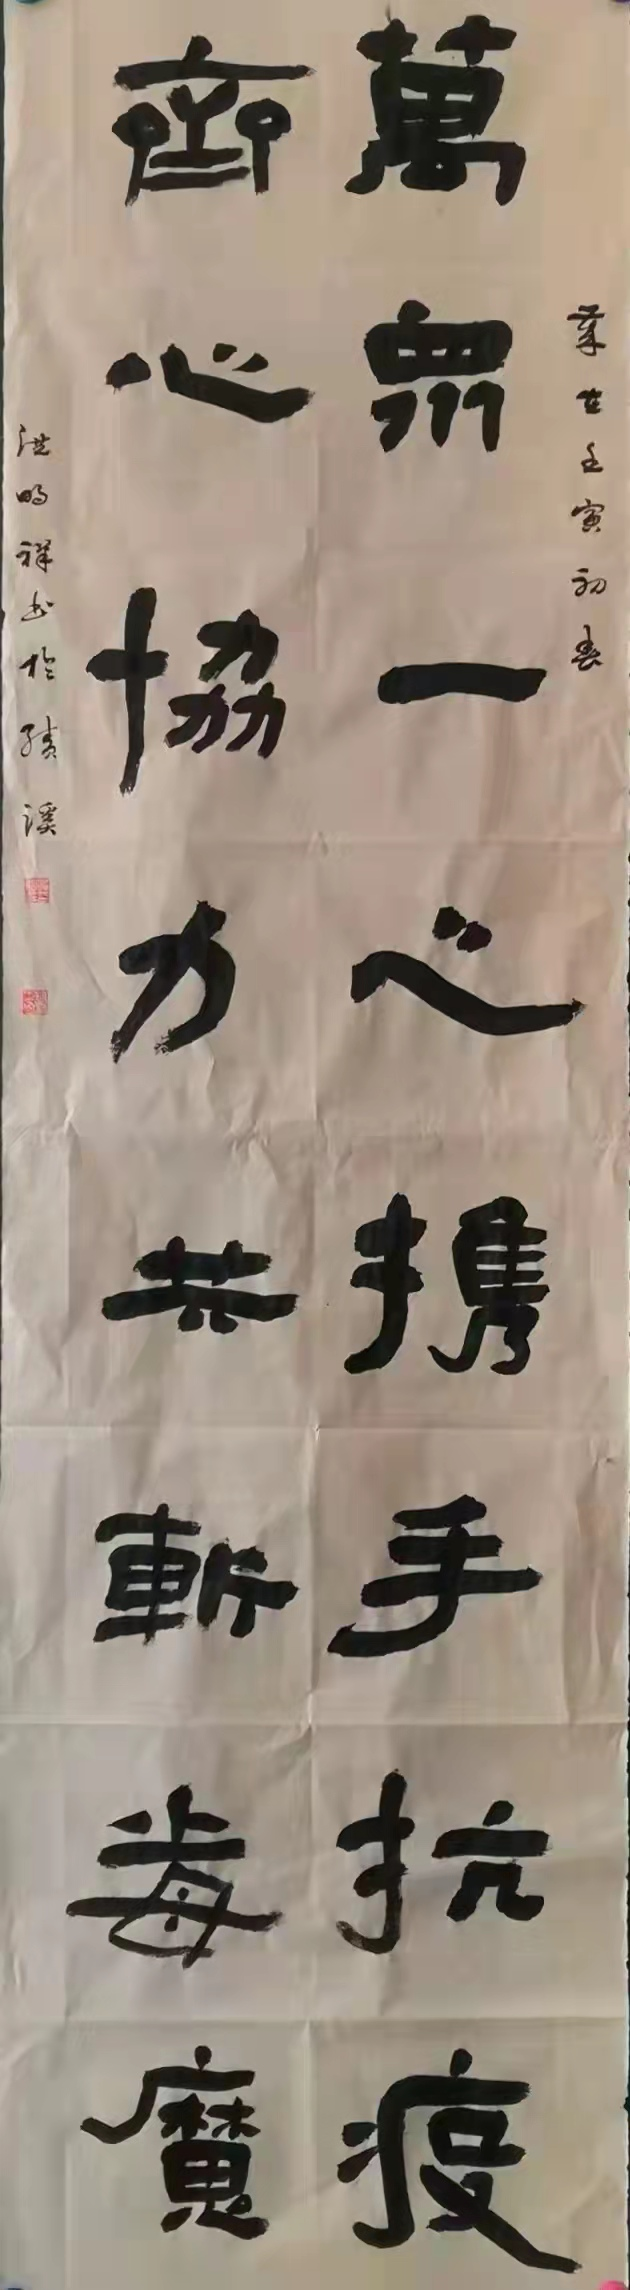 歲在壬寅初春
萬衆一心携手抗疫
齊心協力共斬毒魔
洪明祥书於績溪